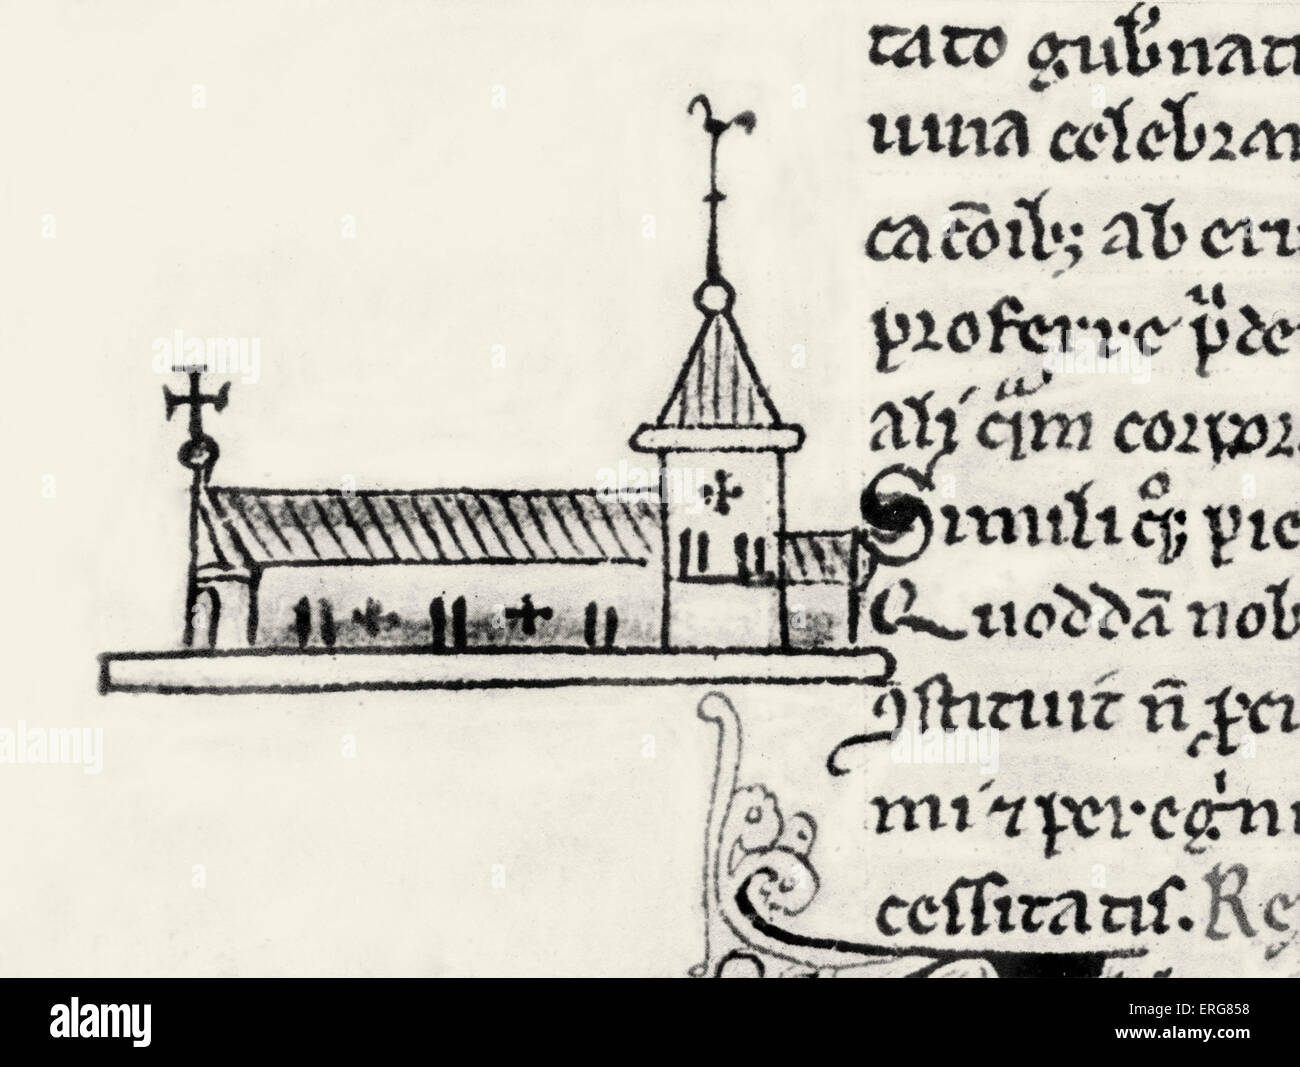 tato gub'nati
uina celebran
catōib; ab eru
proferre p̄de
alij qm corpor
Similiq; pie
Quoddā nob
ꝯstituit n̄ per
mi ⁊ peregni
cessitatis. Re
alamy
alamy
alamy
alamy
alamy
Image ID: ERG858
www.alamy.com